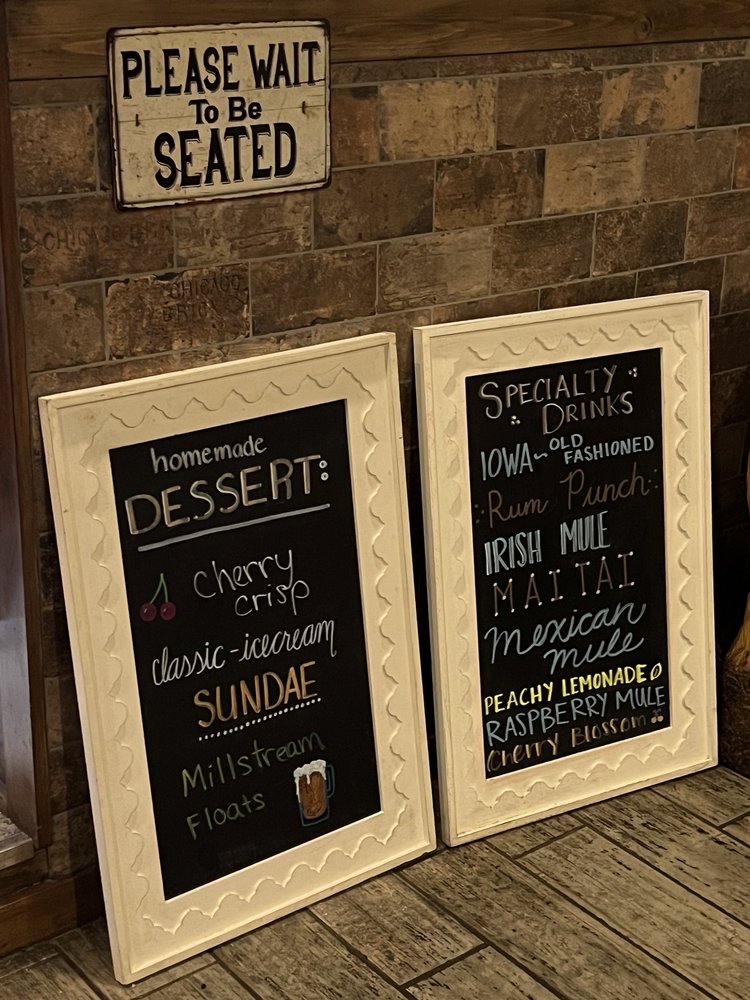 PLEASE WAIT
To Be
SEATED
CHICAGO
homemade
DESSERT:
Cherry
crisp
classic-icecream
SUNDAE
Millstream
Floats
SPECIALTY
DRINKS
IOWA~OLD
FASHIONED
Rum Punch
IRISH MULE
MAI TAI
Mexican
mule
PEACHY LEMONADE
RASPBERRY MULE
Cherry Blossom